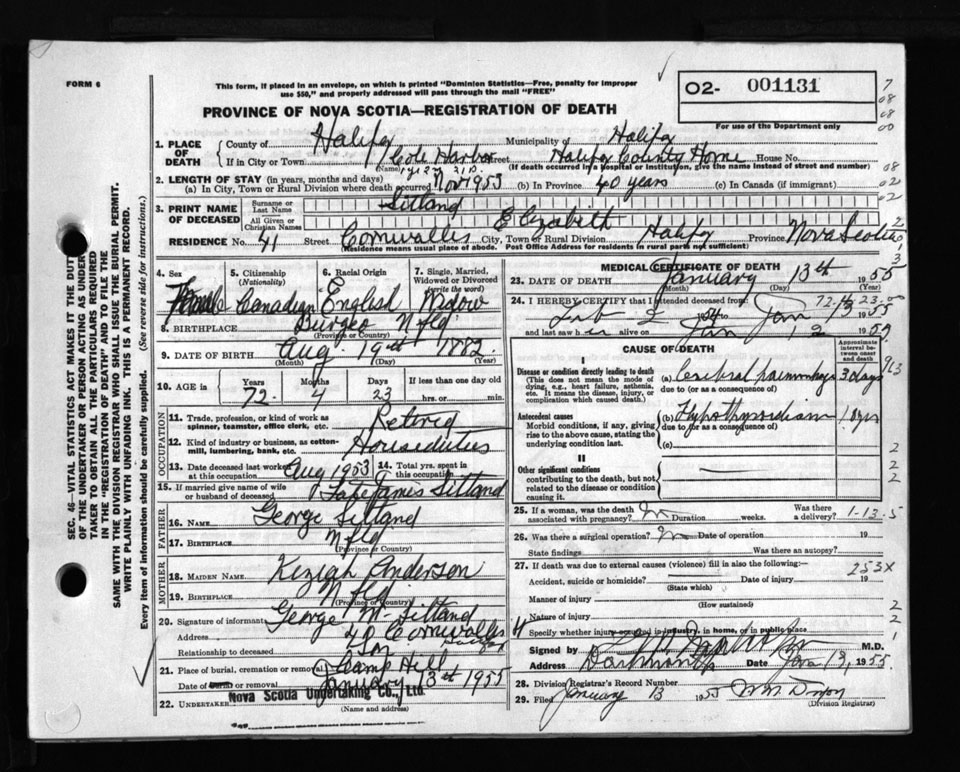 FORM 6
This form, if placed in an envelope, on which is printed "Dominion Statistics—Free, penalty for improper
use $50," and properly addressed will pass through the mail "FREE"
PROVINCE OF NOVA SCOTIA—REGISTRATION OF DEATH
02- 001131
For use of the Department only
1. PLACE OF DEATH
County of Halifax Municipality of Halifax
If in City or Town Cole Harbor Street Halifax County Home House No.
Name (If death occurred in a hospital or institution, give the name instead of street and number)
2. LENGTH OF STAY (in years, months and days)
(a) In City, Town or Rural Division where death occurred Nov 1953 (b) In Province 40 years (c) In Canada (if immigrant)
3. PRINT NAME OF DECEASED
Surname or Last Name
All Given or Christian Names Elizabeth
RESIDENCE No. 41 Street Cornwallis City, Town or Rural Division Halifax Province Nova Scotia
Residence means usual place of abode. Post Office Address for residents in rural parts not sufficient)
4. Sex Female
5. Citizenship (Nationality) Canadian
6. Racial Origin English
7. Single, Married, Widowed or Divorced (write the word) Widow
8. BIRTHPLACE Burgeo Nfld.
9. DATE OF BIRTH Aug. 19th 1882
(Month) (Day) (Year)
10. AGE in Years Months Days If less than one day old
72 4 23 hrs. or min.
OCCUPATION
11. Trade, profession, or kind of work as spinner, teamster, office clerk, etc. Retired
12. Kind of industry or business, as cotton-mill, lumbering, bank, etc. Houseduties
13. Date deceased last worked at this occupation Aug 1953 14. Total yrs. spent in this occupation
15. If married give name of wife or husband of deceased Late James
FATHER
16. NAME George
17. BIRTHPLACE Nfld
(Province or Country)
MOTHER
18. MAIDEN NAME Keziah Anderson
19. BIRTHPLACE Nfld
(Province or Country)
20. Signature of informant George M.
Address Cornwallis Halifax
Relationship to deceased Son
21. Place of burial, cremation or removal Camp Hill
Date of burial or removal January 13th 1955
22. UNDERTAKER Nova Scotia Undertaking Co., Ltd.
(Name and address)
MEDICAL CERTIFICATE OF DEATH
23. DATE OF DEATH January 13th 1955
(Month) (Day) (Year)
24. I HEREBY CERTIFY that I attended deceased from
Feb 2 1954 to Jan 13 1955
and last saw her alive on Jan 12 1955
CAUSE OF DEATH
Approximate interval between onset and death
I
Disease or condition directly leading to death (a) Cerebral haemorrhage 3 days
(This does not mean the mode of dying, e.g., heart failure, asthenia, etc. It means the disease, injury, or complication which caused death.)
due to (or as a consequence of)
Antecedent causes (b) Hypothyroidism
Morbid conditions, if any, giving rise to the above cause, stating the underlying condition last.
due to (or as a consequence of)
(c)
II
Other significant conditions
contributing to the death, but not related to the disease or condition causing it.
25. If a woman, was the death associated with pregnancy? Duration weeks. Was there a delivery?
1-13-5
26. Was there a surgical operation? Date of operation 19
State findings Was there an autopsy?
27. If death was due to external causes (violence) fill in also the following:—
253X
Accident, suicide or homicide? Date of injury 19
(State which)
Manner of injury
(How sustained)
Nature of injury
Specify whether injury occurred in industry, in home, or in public place
Signed by M.D.
Address Dartmouth Date Jan 13, 1955
28. Division Registrar's Record Number
29. Filed January 13 1955
(Division Registrar)
SEC. 46—VITAL STATISTICS ACT MAKES IT THE DUTY
OF THE UNDERTAKER OR PERSON ACTING AS UNDER-
TAKER TO OBTAIN ALL THE PARTICULARS REQUIRED
IN THE "REGISTRATION OF DEATH" AND TO FILE THE
SAME WITH THE DIVISION REGISTRAR WHO SHALL ISSUE THE BURIAL PERMIT.
WRITE PLAINLY WITH UNFADING INK. THIS IS A PERMANENT RECORD.
Every item of information should be carefully supplied. (See reverse side for instructions.)